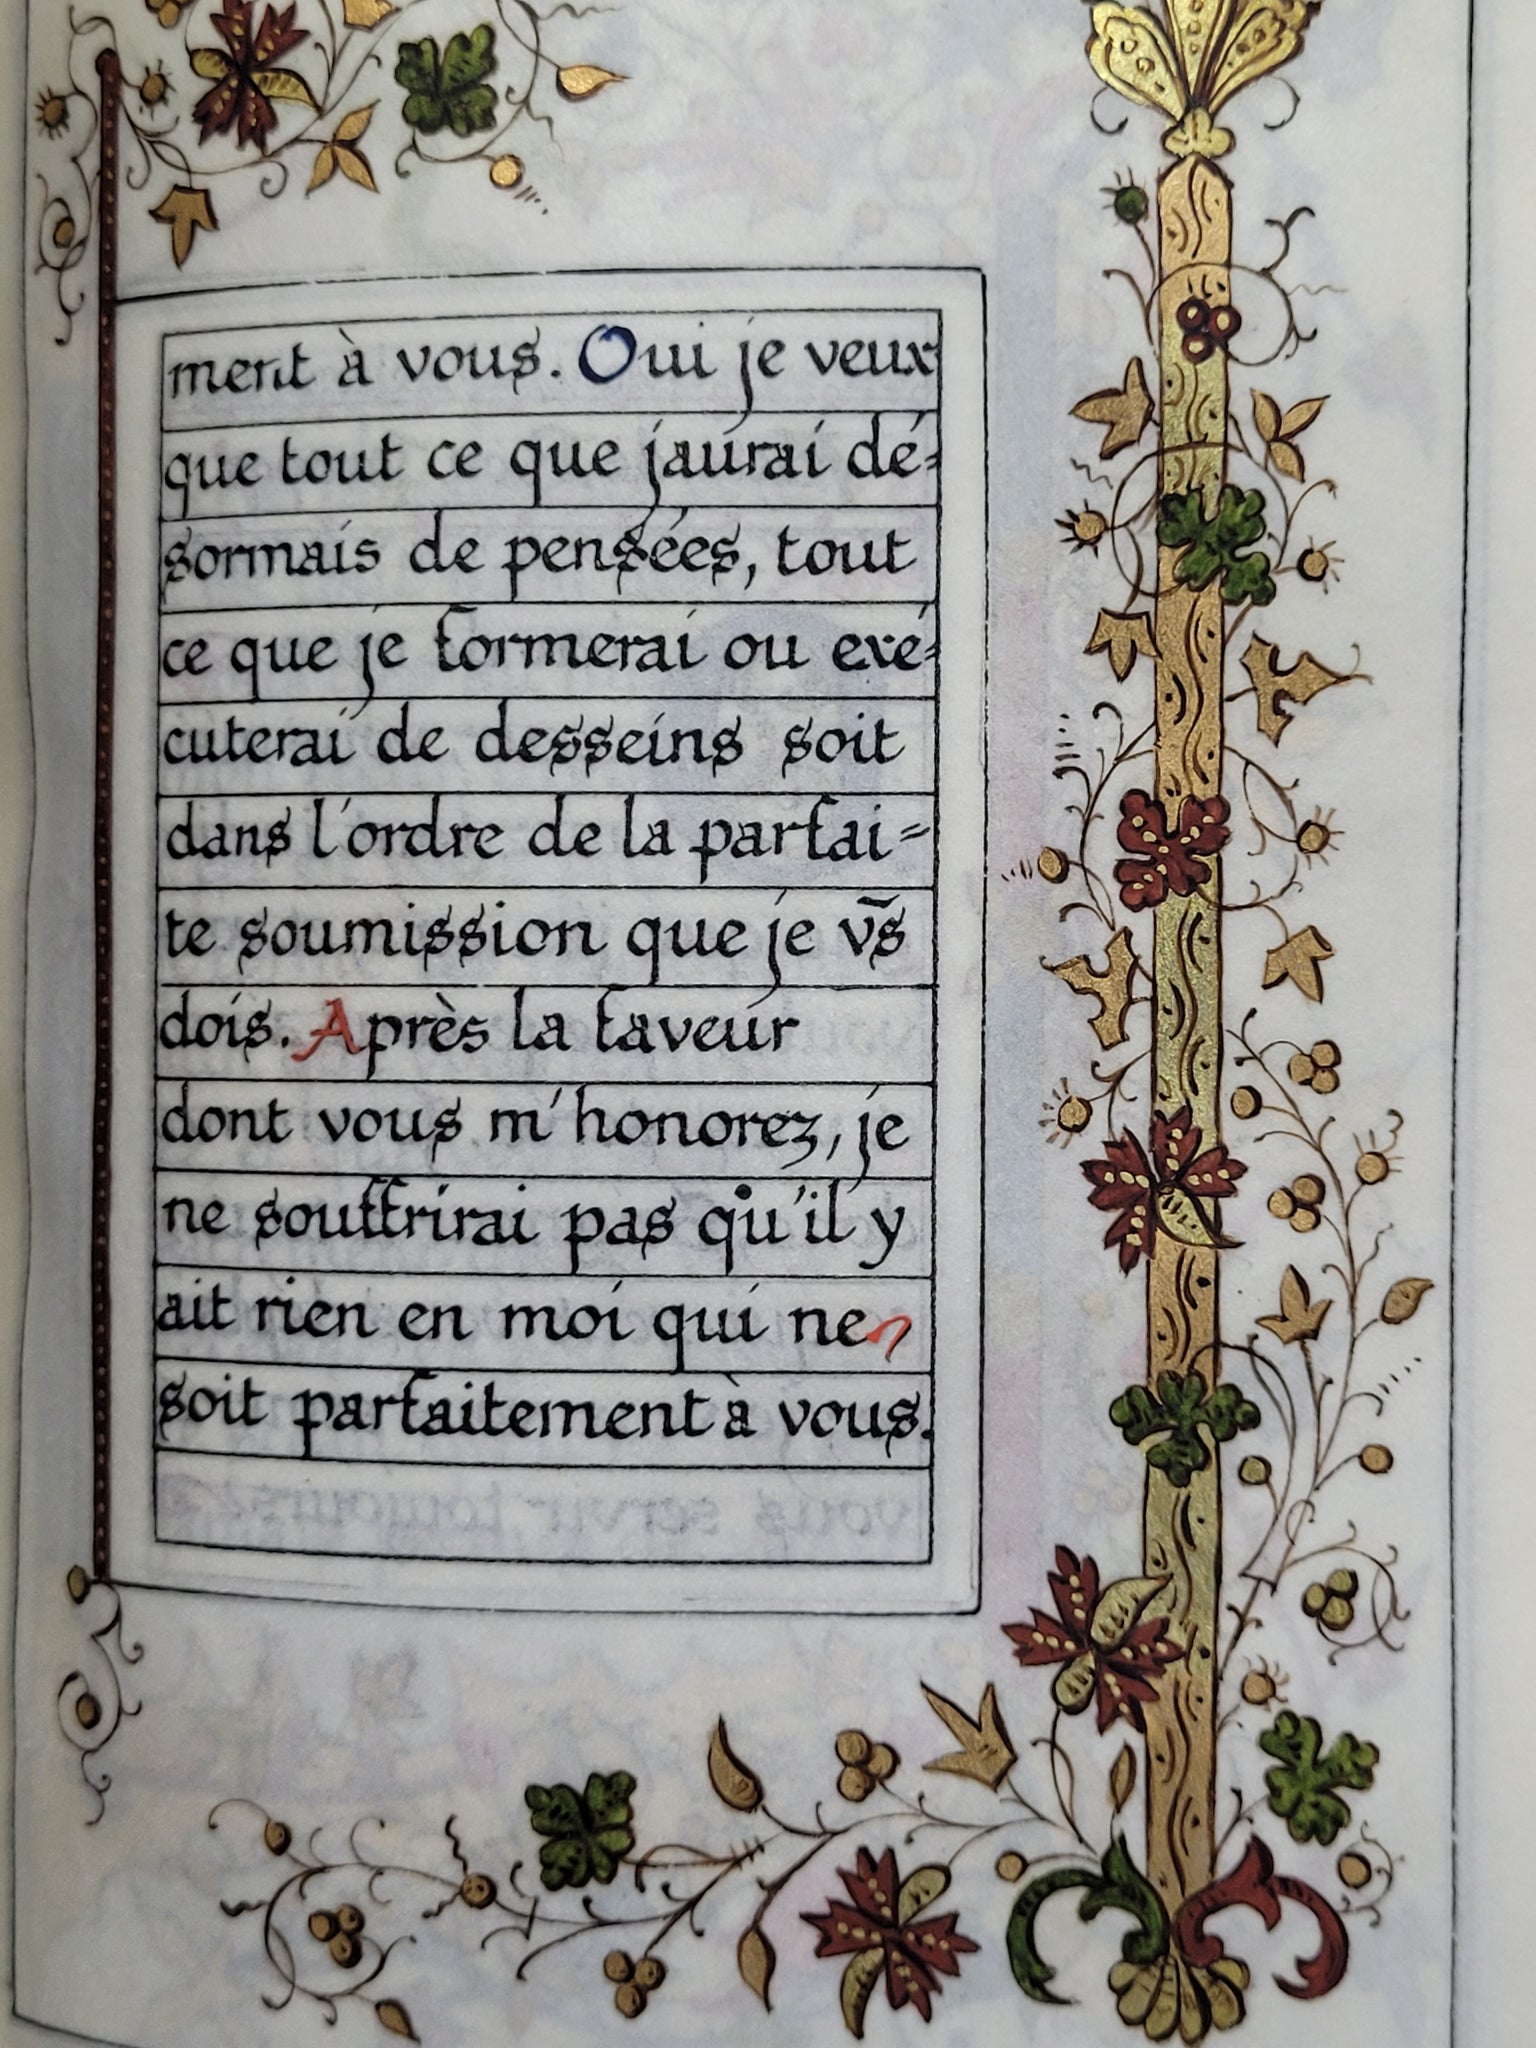 ment à vous. Oui je veux
que tout ce que jaurai dé=
sormais de pensées, tout
ce que je formerai ou exé=
cuterai de desseins soit
dans l'ordre de la parfai=
te soumission que je vs̄
dois. Après la faveur
dont vous m'honorez, je
ne souffrirai pas qu'il y
ait rien en moi qui ne
soit parfaitement à vous.